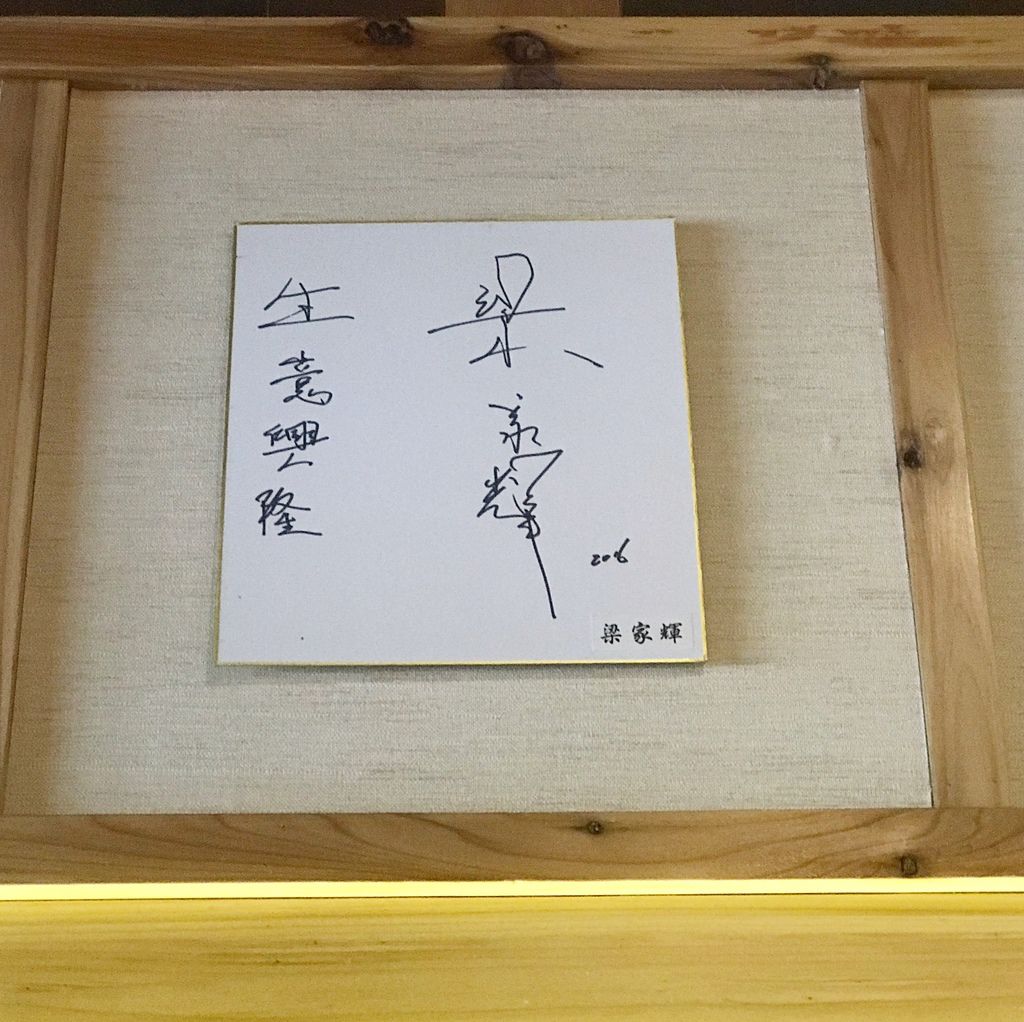 梁家輝
生意興隆
2016
梁家輝